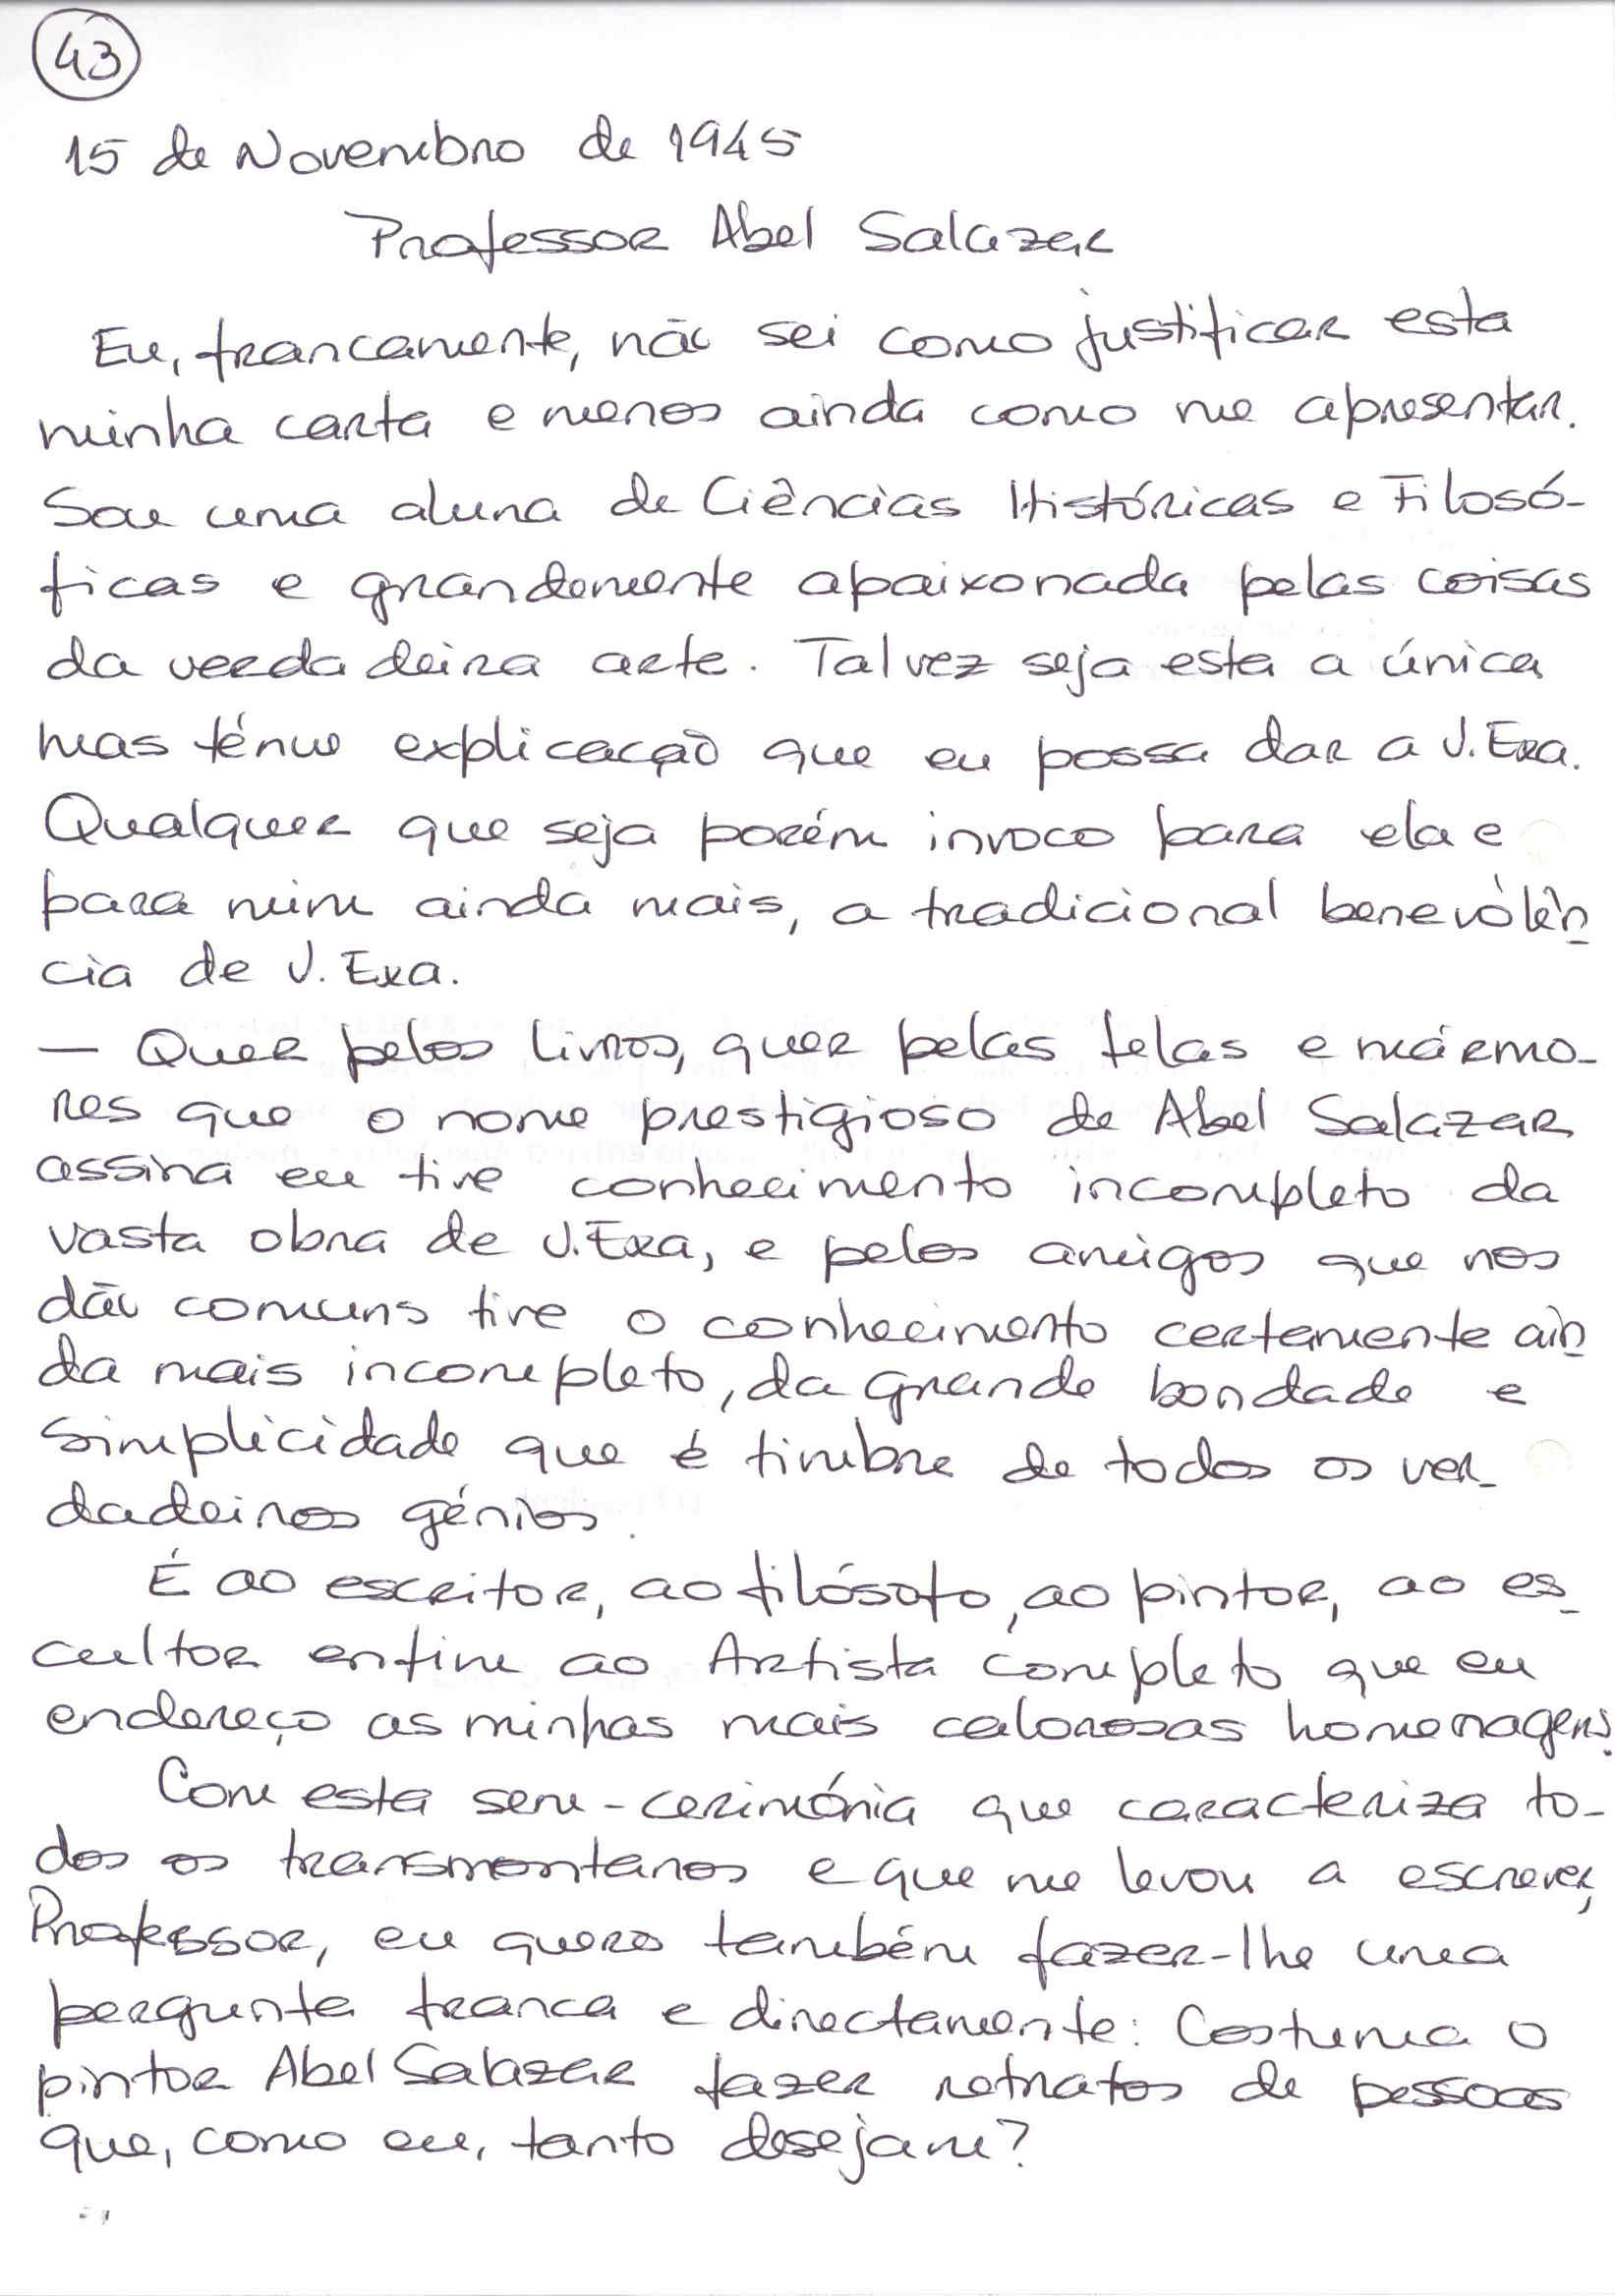 43
15 de Novembro de 1945
Professor Abel Salazar
Eu, francamente, não sei como justificar esta
minha carta e menos ainda como me apresentar.
Sou uma aluna de Ciências Históricas e Filosó-
ficas e grandemente apaixonada pelas coisas
da verdadeira arte. Talvez seja esta a única
mas ténue explicação que eu possa dar a V. Exa.
Qualquer que seja porém invoco para ela e
para mim ainda mais, a tradicional benevolên-
cia de V. Exa.
— Quer pelos livros, quer pelas telas e mármo-
res que o nome prestigioso de Abel Salazar
assina eu tive conhecimento incompleto da
vasta obra de V. Exa, e pelos amigos que nos
dão comuns tive o conhecimento certamente ain-
da mais incompleto, da grande bondade e
simplicidade que é timbre de todos os ver-
dadeiros génios.
É ao escritor, ao filósofo, ao pintor, ao es-
cultor enfim ao Artista completo que eu
endereço as minhas mais calorosas homenagens.
Com esta sem-cerimónia que caracteriza to-
dos os transmontanos e que me levou a escrever,
Professor, eu quero também fazer-lhe uma
pergunta franca e directamente: Costuma o
pintor Abel Salazar fazer retratos de pessoas
que, como eu, tanto desejam?